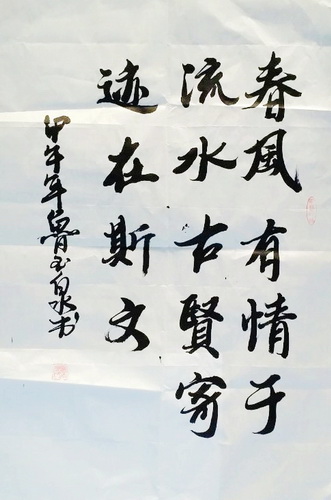 春風有情于
流水古賢寄
迹在斯文
甲午年魯玉泉书